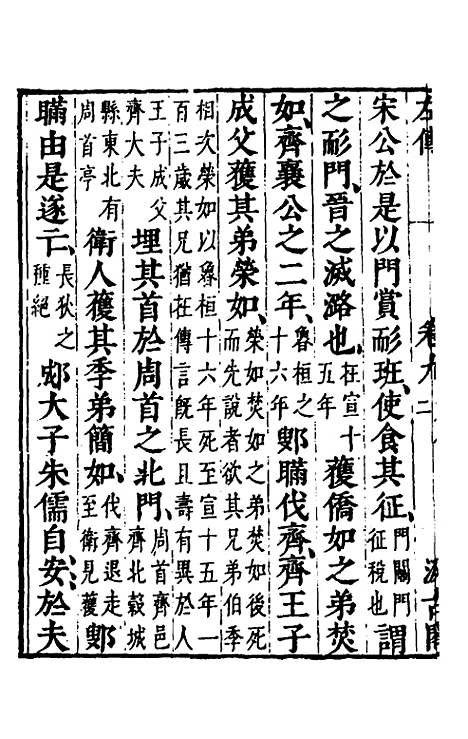 左傳 卷九 二 汲古閣
宋公於是以門賞耏班、使食其征、門關門征稅也謂
之耏門、晉之滅潞也、在宣十五年獲僑如之弟焚
如、齊襄公之二年、魯桓之十六年鄋瞞伐齊、齊王子
成父獲其弟榮如、榮如焚如之弟焚如後死而先說者欲其兄弟伯季
相次榮如以魯桓十六年死至宣十五年一百三歲其兄猶在傳言既長且壽有異於人
王子成父齊大夫埋其首於周首之北門、周首齊邑濟北穀城
縣東北有周首亭衛人獲其季弟簡如、伐齊退走至衛見獲鄋
瞞由是遂亡、長狄之種絕郕大子朱儒自安於夫